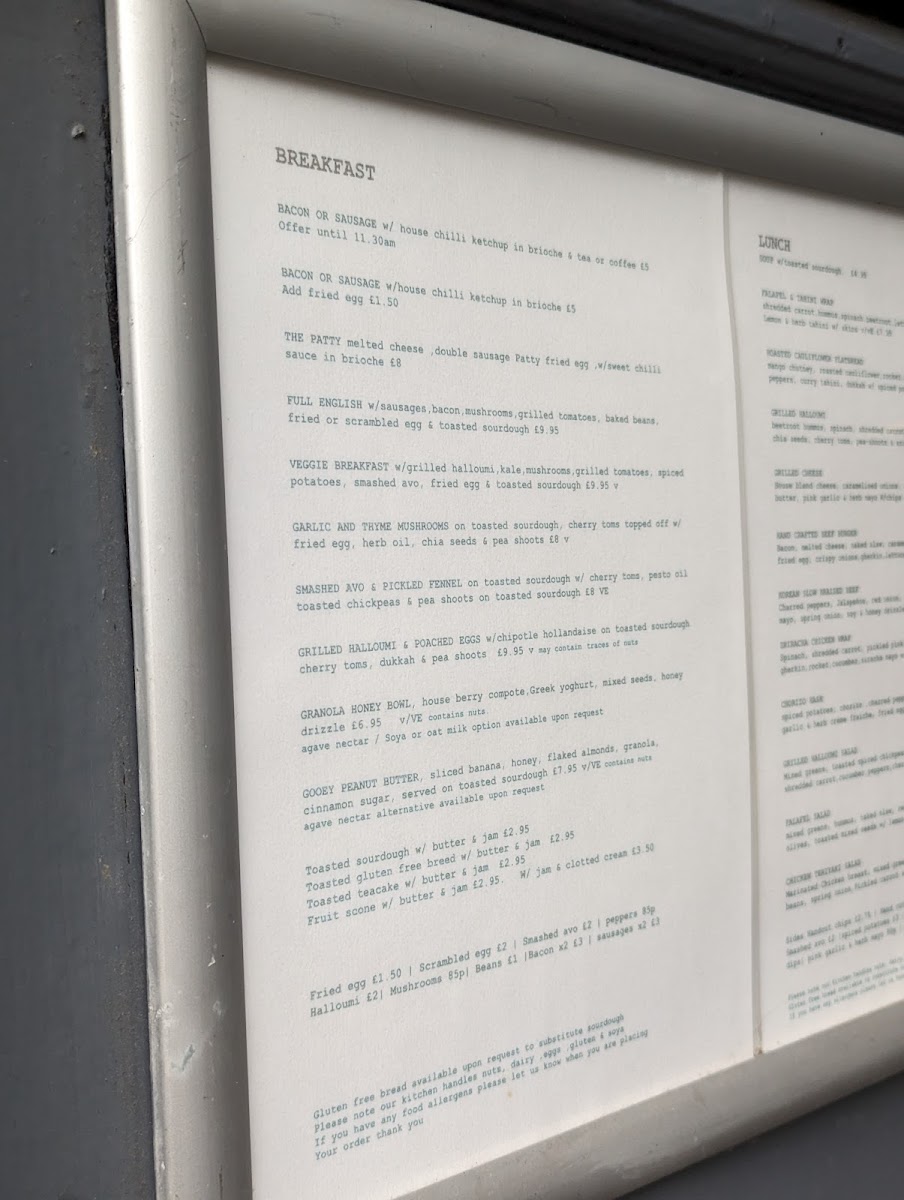 BREAKFAST
BACON OR SAUSAGE w/ house chilli ketchup in brioche & tea or coffee £5
Offer until 11.30am
BACON OR SAUSAGE w/house chilli ketchup in brioche £5
Add fried egg £1.50
THE PATTY melted cheese ,double sausage Patty fried egg ,w/sweet chilli
sauce in brioche £8
FULL ENGLISH w/sausages,bacon,mushrooms,grilled tomatoes, baked beans,
fried or scrambled egg & toasted sourdough £9.95
VEGGIE BREAKFAST w/grilled halloumi,kale,mushrooms,grilled tomatoes, spiced
potatoes, smashed avo, fried egg & toasted sourdough £9.95 v
GARLIC AND THYME MUSHROOMS on toasted sourdough, cherry toms topped off w/
fried egg, herb oil, chia seeds & pea shoots £8 v
SMASHED AVO & PICKLED FENNEL on toasted sourdough w/ cherry toms, pesto oil
toasted chickpeas & pea shoots on toasted sourdough £8 VE
GRILLED HALLOUMI & POACHED EGGS w/chipotle hollandaise on toasted sourdough
cherry toms, dukkah & pea shoots £9.95 v may contain traces of nuts
GRANOLA HONEY BOWL, house berry compote,Greek yoghurt, mixed seeds, honey
drizzle £6.95 v/VE contains nuts
agave nectar / Soya or oat milk option available upon request
GOOEY PEANUT BUTTER, sliced banana, honey, flaked almonds, granola,
cinnamon sugar, served on toasted sourdough £7.95 v/VE contains nuts
agave nectar alternative available upon request
Toasted sourdough w/ butter & jam £2.95
Toasted gluten free breed w/ butter & jam £2.95
Toasted teacake w/ butter & jam £2.95
Fruit scone w/ butter & jam £2.95. W/ jam & clotted cream £3.50
Fried egg £1.50 | Scrambled egg £2 | Smashed avo £2 | peppers 85p
Halloumi £2| Mushrooms 85p| Beans £1 |Bacon x2 £3 | sausages x2 £3
Gluten free bread available upon request to substitute sourdough
Please note our kitchen handles nuts, dairy ,eggs ,gluten & soya
If you have any food allergens please let us know when you are placing
Your order thank you
LUNCH
SOUP w/toasted sourdough
FALAFEL & TAHINI WRAP
shredded carrot,hummus,spinach,beetroot
Lemon & herb tahini w/
ROASTED CAULIFLOWER FLATBREAD
Mango chutney, roasted cauliflower,rocket,
peppers, curry tahini, dukkah w/ spiced
GRILLED HALLOUMI
beetroot hummus, spinach, shredded carrot
chia seeds, cherry toms, pea shoots &
GRILLED CHEESE
House blend cheese, caramelised onions
butter, pink garlic & herb mayo
HAND CRAFTED BEEF BURGER
Bacon, melted cheese,
fried egg, crispy onions,gherkin
KOREAN SLOW BRAISED BEEF
Charred peppers, Jalapenos, red onion,
mayo, spring onion, soy & honey
SRIRACHA CHICKEN WRAP
Spinach, shredded carrot, pickled pink
gherkin,rocket,cucumber,sriracha mayo
CHORIZO HASH
spiced potatoes, chorizo,
garlic & herb creme fraiche, fried egg
GRILLED HALLOUMI SALAD
Mixed greens, toasted spiced chickpeas
shredded carrot,cucumber,peppers
FALAFEL SALAD
mixed greens, hummus,
olives, toasted mixed seeds w/
CHICKEN TERIYAKI SALAD
Marinated Chicken breast, mixed
beans, spring onion,Pickled carrot
Sides